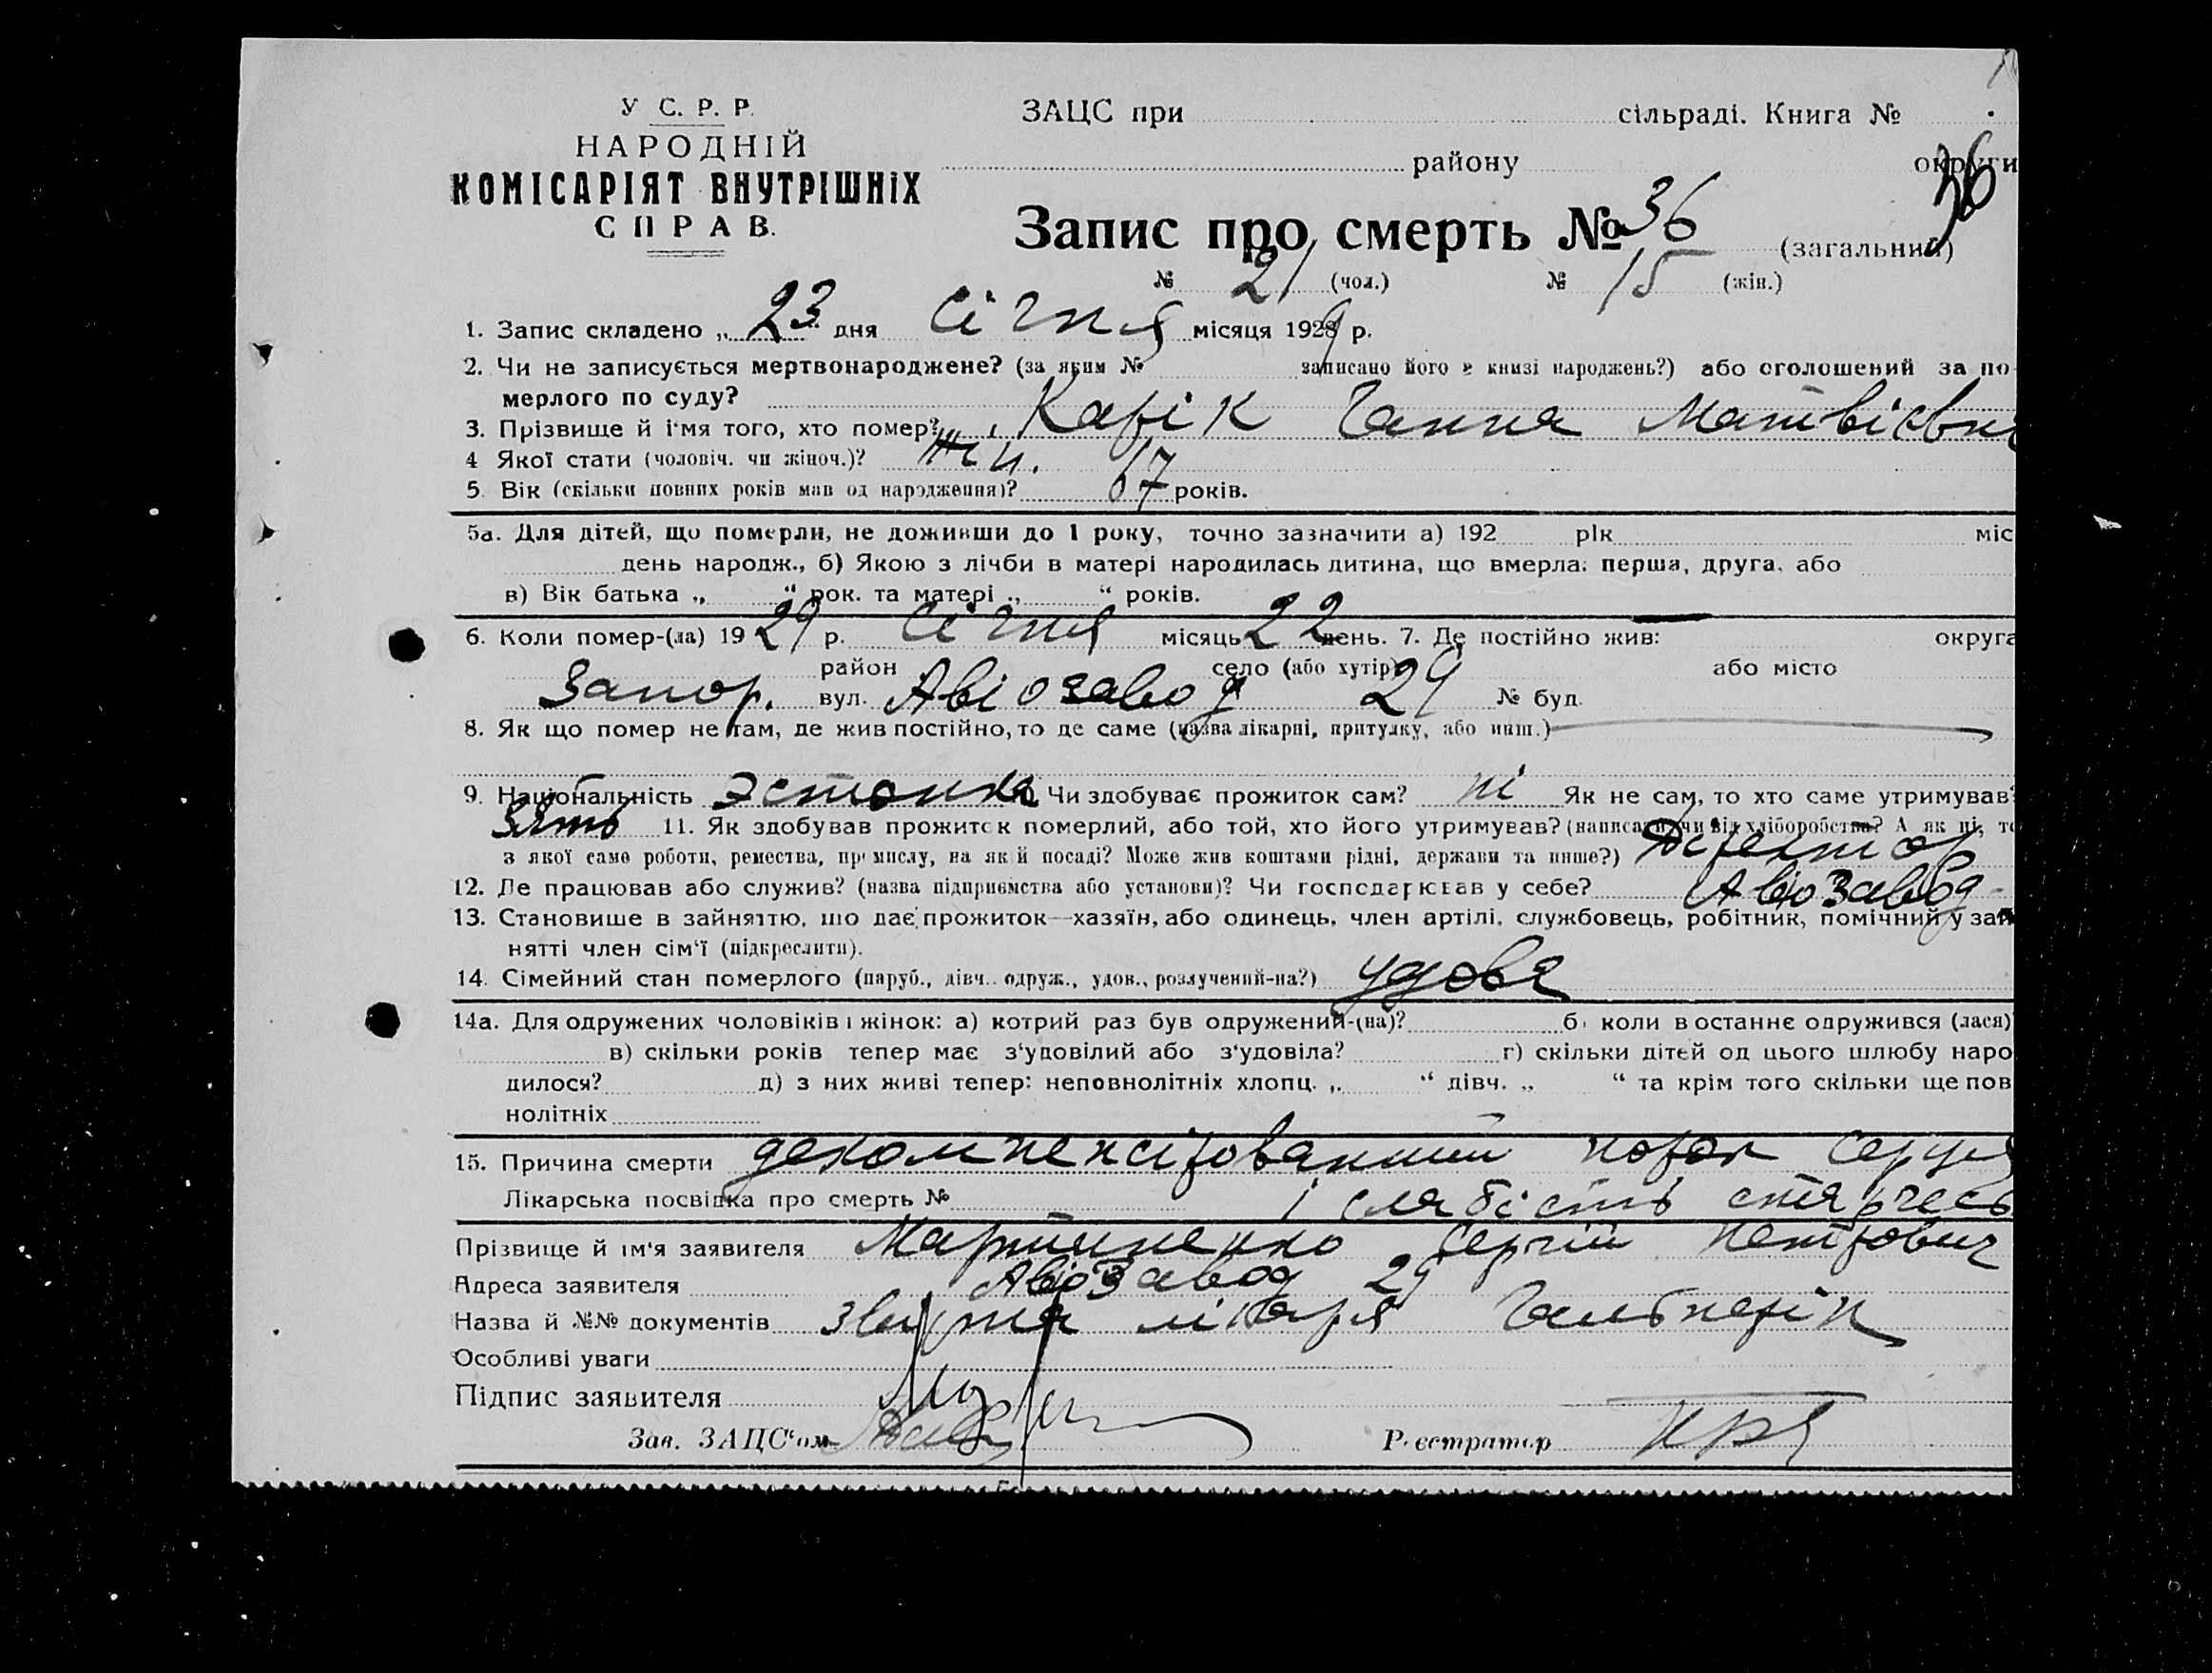 У С. Р. Р.
НАРОДНІЙ
КОМІСАРІЯТ ВНУТРІШНІХ
СПРАВ.
ЗАЦС при сільраді. Книга №
району округи
36
Запис про смерть № 36 (загальний)
№ 21 (чол.) № 15 (жін.)
1. Запис складено „ 23 " дня Січня місяця 1929 р.
2. Чи не записується мертвонароджене? (за яким № записано його в книзі народжень?) або оголошений за по
мерлого по суду?
3. Прізвище й і'мя того, хто помер? Карік Ганна Матвієвна
4 Якої стати (чоловіч. чи жіноч.)? жін.
5. Вік (скільки повних років мав од народження)? 67 років.
5а. Для дітей, що померли, не доживши до 1 року, точно зазначити а) 192 рік міс
день народж., б) Якою з лічби в матері народилась дитина, що вмерла: перша, друга, або
в) Вік батька „ " рок. та матері „ " років.
6. Коли помер-(ла) 1929 р. Січня місяць 22 день. 7. Де постійно жив: округа
район село (або хутір) або місто
Запор. вул. Авіозавод 29 № буд.
8. Як що помер не там, де жив постійно, то де саме (назва лікарні, притулку, або инш.)
9. Національність Эстонка Чи здобуває прожиток сам? ні Як не сам, то хто саме утримував?
Зять 11. Як здобував прожиток померлий, або той, хто його утримував? (написати, чи від хліборобства? А як ні, то
з якої саме роботи, ремества, промислу, на якій посаді? Може жив коштами рідні, держави та инше?) Директор
12. Де працював або служив? (назва підприємства або установи)? Чи господарював у себе? Авіозавод
13. Становише в зайняттю, що дає прожиток—хазяїн, або одинець, член артілі, службовець, робітник, помічний у зай
нятті член сім'ї (підкреслити).
14. Сімейний стан померлого (паруб., дівч., одруж., удов., розлучений-на?) удова
14а. Для одружених чоловіків і жінок: а) котрий раз був одружений-(на)? б) коли востаннє одружився (лася)
в) скільки років тепер має з'удовілий або з'удовіла? г) скільки дітей од цього шлюбу наро
дилося? д) з них живі тепер: неповнолітніх хлопц. „ " дівч. „ " та крім того скільки ще пов
нолітніх
15. Причина смерти декомпенсірованний порок серця
Лікарська посвідка про смерть № і слабість старчесь
Прізвище й ім'я заявителя Мартиненко Сергій Петрович
Адреса заявителя Авіозавод 29
Назва й №№ документів лікаря Гальперін
Особливі уваги
Підпис заявителя
Зав. ЗАЦС'ом Реєстратор